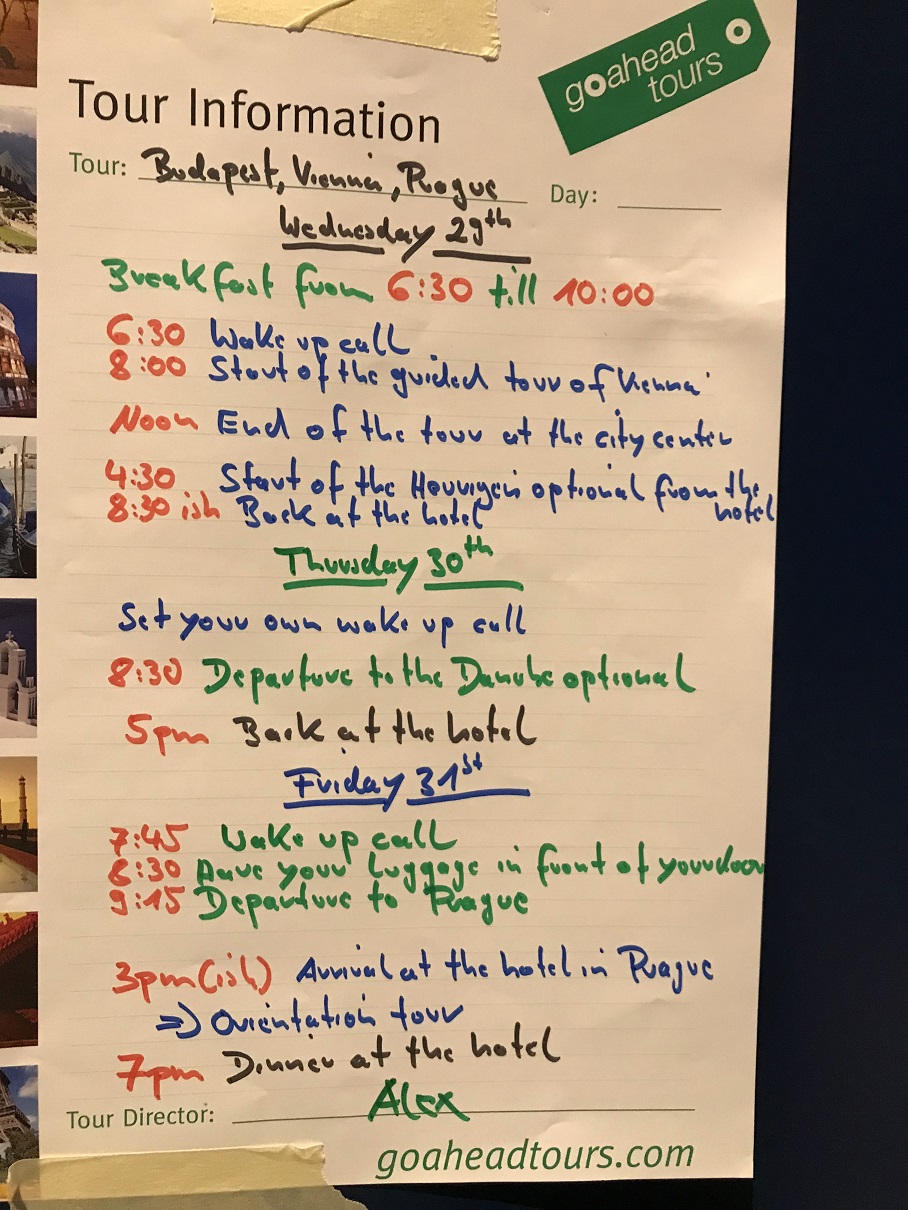 goahead
tours
Tour Information
Tour: Budapest, Vienna, Prague Day:
Wednesday 29th
Breakfast from 6:30 till 10:00
6:30 Wake up call
8:00 Start of the guided tour of Vienna
Noon End of the tour at the city center
4:30 Start of the Heurigen optional from the
hotel
8:30 ish Back at the hotel
Thursday 30th
Set your own wake up call
8:30 Departure to the Danube optional
5pm Back at the hotel
Friday 31st
7:45 Wake up call
8:30 Have your luggage in front of your door
9:15 Departure to Prague
3pm(ish) Arrival at the hotel in Prague
=> Orientation tour
7pm Dinner at the hotel
Tour Director: Alex
goaheadtours.com